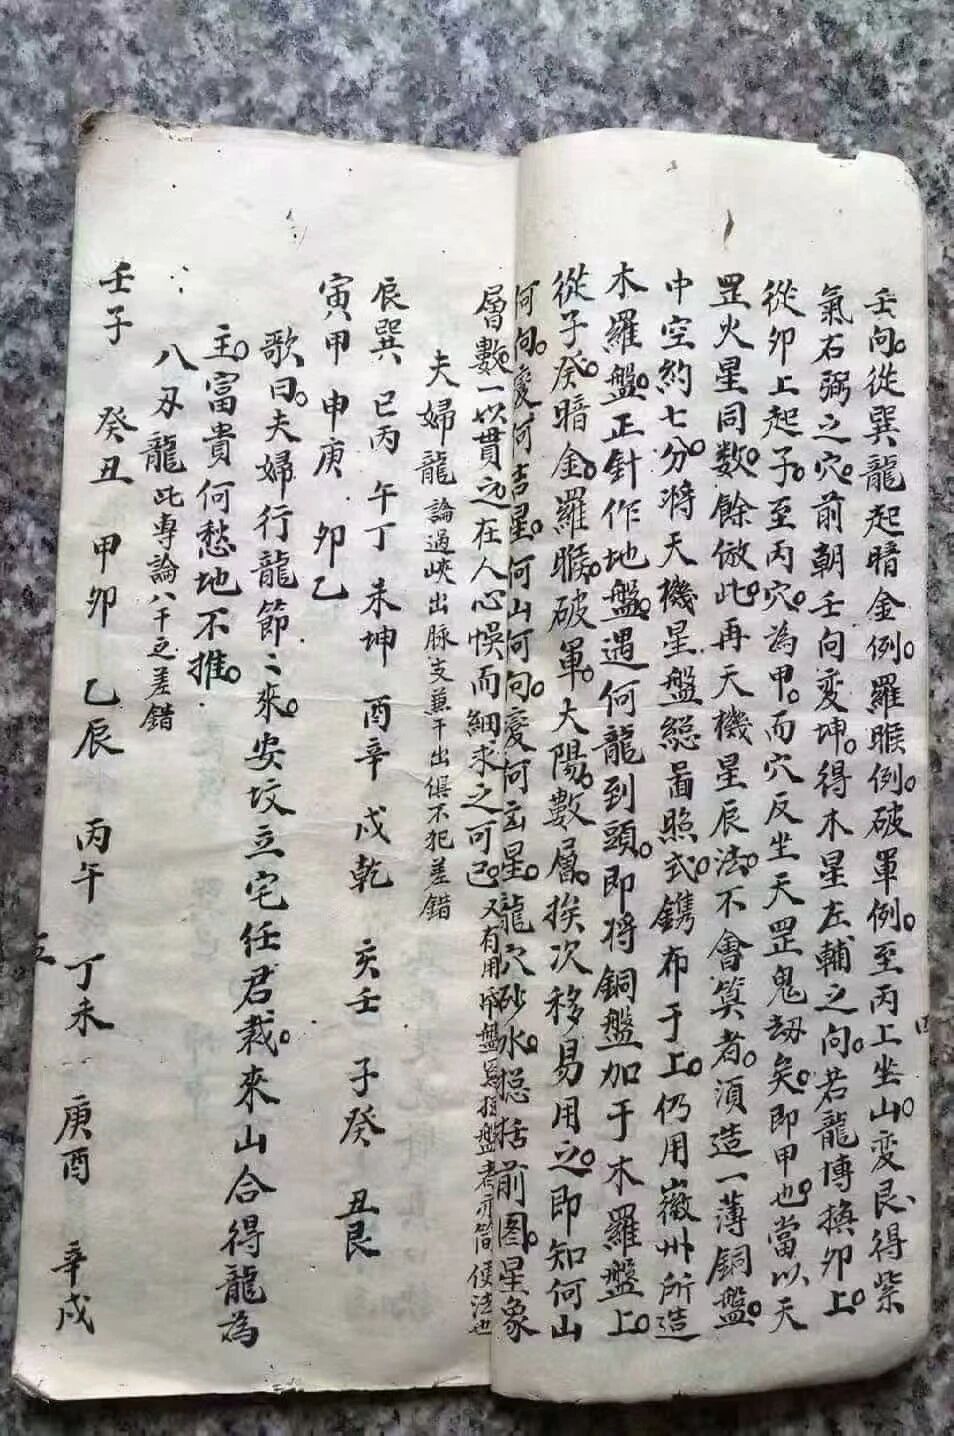 壬向。從巽龍起暗金例。羅睺例。破軍例。至丙上坐山。变艮、得紫
氣右弼之穴。前朝壬向变坤。得木星左輔之向。若龍博換卯上。
從卯上起子。至丙穴。為甲。而穴反坐天罡鬼劫矣。即甲也。當以天
罡火星同数。餘倣此。再天機星辰法。不會算者。須造一薄銅盤。
中空約七分。将天機星盤総啚照式。鐫布于上。仍用徽州所造
木羅盤。正针作地盤。遇何龍到頭。即将銅盤加于木羅盤上。
從子癸。暗金。羅睺。破軍。太陽。數層。挨次移易用之。即知何山
何向。变何吉星。何山何向。变何凶星。龍穴砂水。总括前图。星象
層數。一以貫之。在人心悞而細求之可已。又有用
夫婦龍 論過峽出脉支兼干出俱不犯差錯
辰巽 巳丙 午丁 未坤 酉辛 戌乾 亥壬 子癸 丑艮
寅甲 申庚 卯乙
歌曰。夫婦行龍節〻來。安坟立宅任君裁。來山合得龍為
主。富貴何愁地不推。
八刄龍 此專論八干之差錯
壬子 癸丑 甲卯 乙辰 丙午 丁未 庚酉 辛戌
五
四